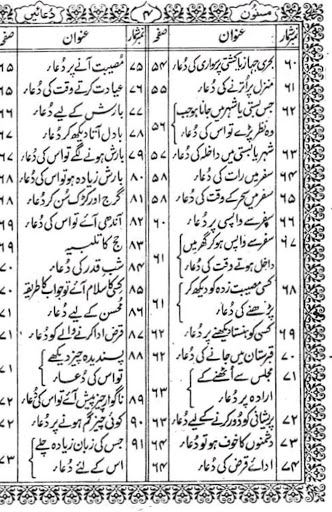 مسنون ۴ دعائیں
نمبر شمار عنوان صفحہ
۶۰ بحری جہاز یا کشتی پر سواری کی دُعا ۵۴
۶۱ منزل پر اُترنے کی دُعا ۵۵
۶۲ جس بستی یا شہر میں جانا ہو جب
وہ نظر پڑے تو اس کی دُعا ۵۶
۶۳ شہر یا بستی میں داخلہ کی دُعا ۵۷
۶۴ سفر میں رات کی دُعا ۵۸
۶۵ سفر میں سحر کے وقت کی دُعا ۵۸
۶۶ سفر سے واپسی پر دُعا ۶۰
۶۷ سفر سے واپس ہو کر گھر میں
داخل ہوتے وقت کی دُعا ۶۱
۶۸ کسی مصیبت زدہ کو دیکھ کر
پڑھنے کی دُعا ۶۱
۶۹ کسی کو ہنستا دیکھنے پر دُعا ۶۲
۷۰ قبرستان میں جانے کی دُعا ۶۲
۷۱ مجلس سے اُٹھنے کے
ارادہ پر دُعا ۶۳
۷۲ پریشانی کو دُور کرنے کے لیے دُعا ۶۳
۷۳ دشمنوں کا خوف ہو تو دُعا ۶۴
۷۴ ادائے قرض کی دُعا ۶۴
نمبر شمار عنوان صفحہ
۷۵ مُصیبت آنے پر دُعا ۶۵
۷۶ عیادت کرتے وقت کی دُعا ۶۵
۷۷ بارش کے لیے دُعا
۷۸ بادل آتا دیکھ کر دُعا ۶۷
۷۹ بارش ہونے لگے تو اس کی دُعا ۶۷
۸۰ بارش زیادہ ہو تو اس کی دُعا ۶۸
۸۱ گرج اور کڑک سُن کر دُعا ۶۸
۸۲ آندھی آئے تو اس کی دُعا
۸۳ حج کا تلبیہ ۶۹
۸۴ شبِ قدر کی دُعا ۷۰
۸۵ کسی کا سلام آئے تو جواب کا طریقہ ۷۰
۸۶ محسن کے لیے دُعا ۷۱
۸۷ قرض ادا کرنے والے کو دُعا ۷۱
۸۸ پسندیدہ چیز دیکھے
تو اس کی دُعا ۷۱
۸۹ ناگوار چیز پیش آئے تو اس کی دُعا ۷۲
۹۰ کوئی چیز گم ہونے پر دُعا ۷۲
۹۱ جس کی زبان زیادہ چلے
اس کے لئے دُعا ۷۳